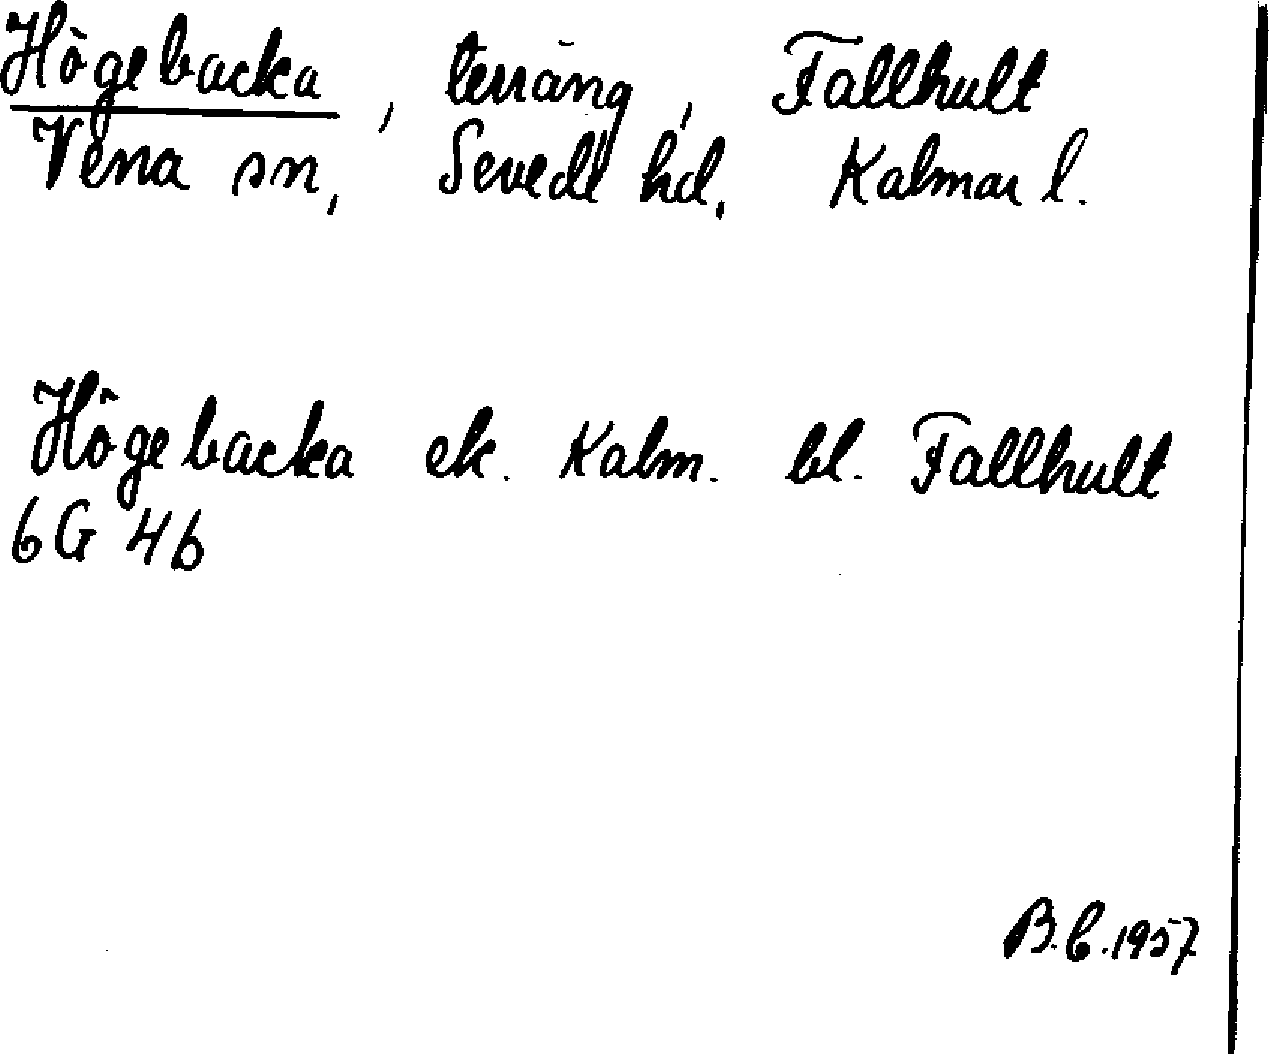 Högebacka, terräng, Fallhult
Vena sn, Sevede hd, Kalmar l.
Högebacka ek. Kalm. bl. Fallhult
6G 4b
B.C. 1957